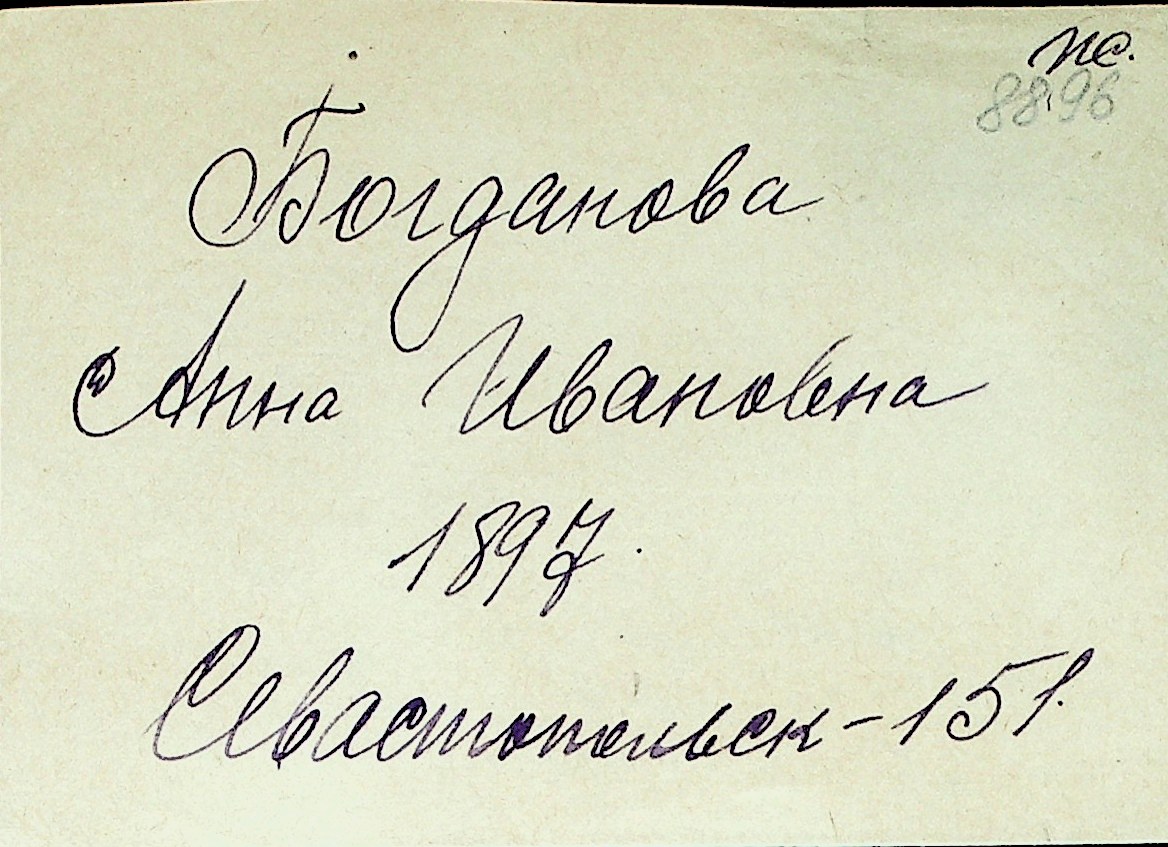 пс.
8896
Богданова
Анна Ивановна
1897.
Севастопольск-151.